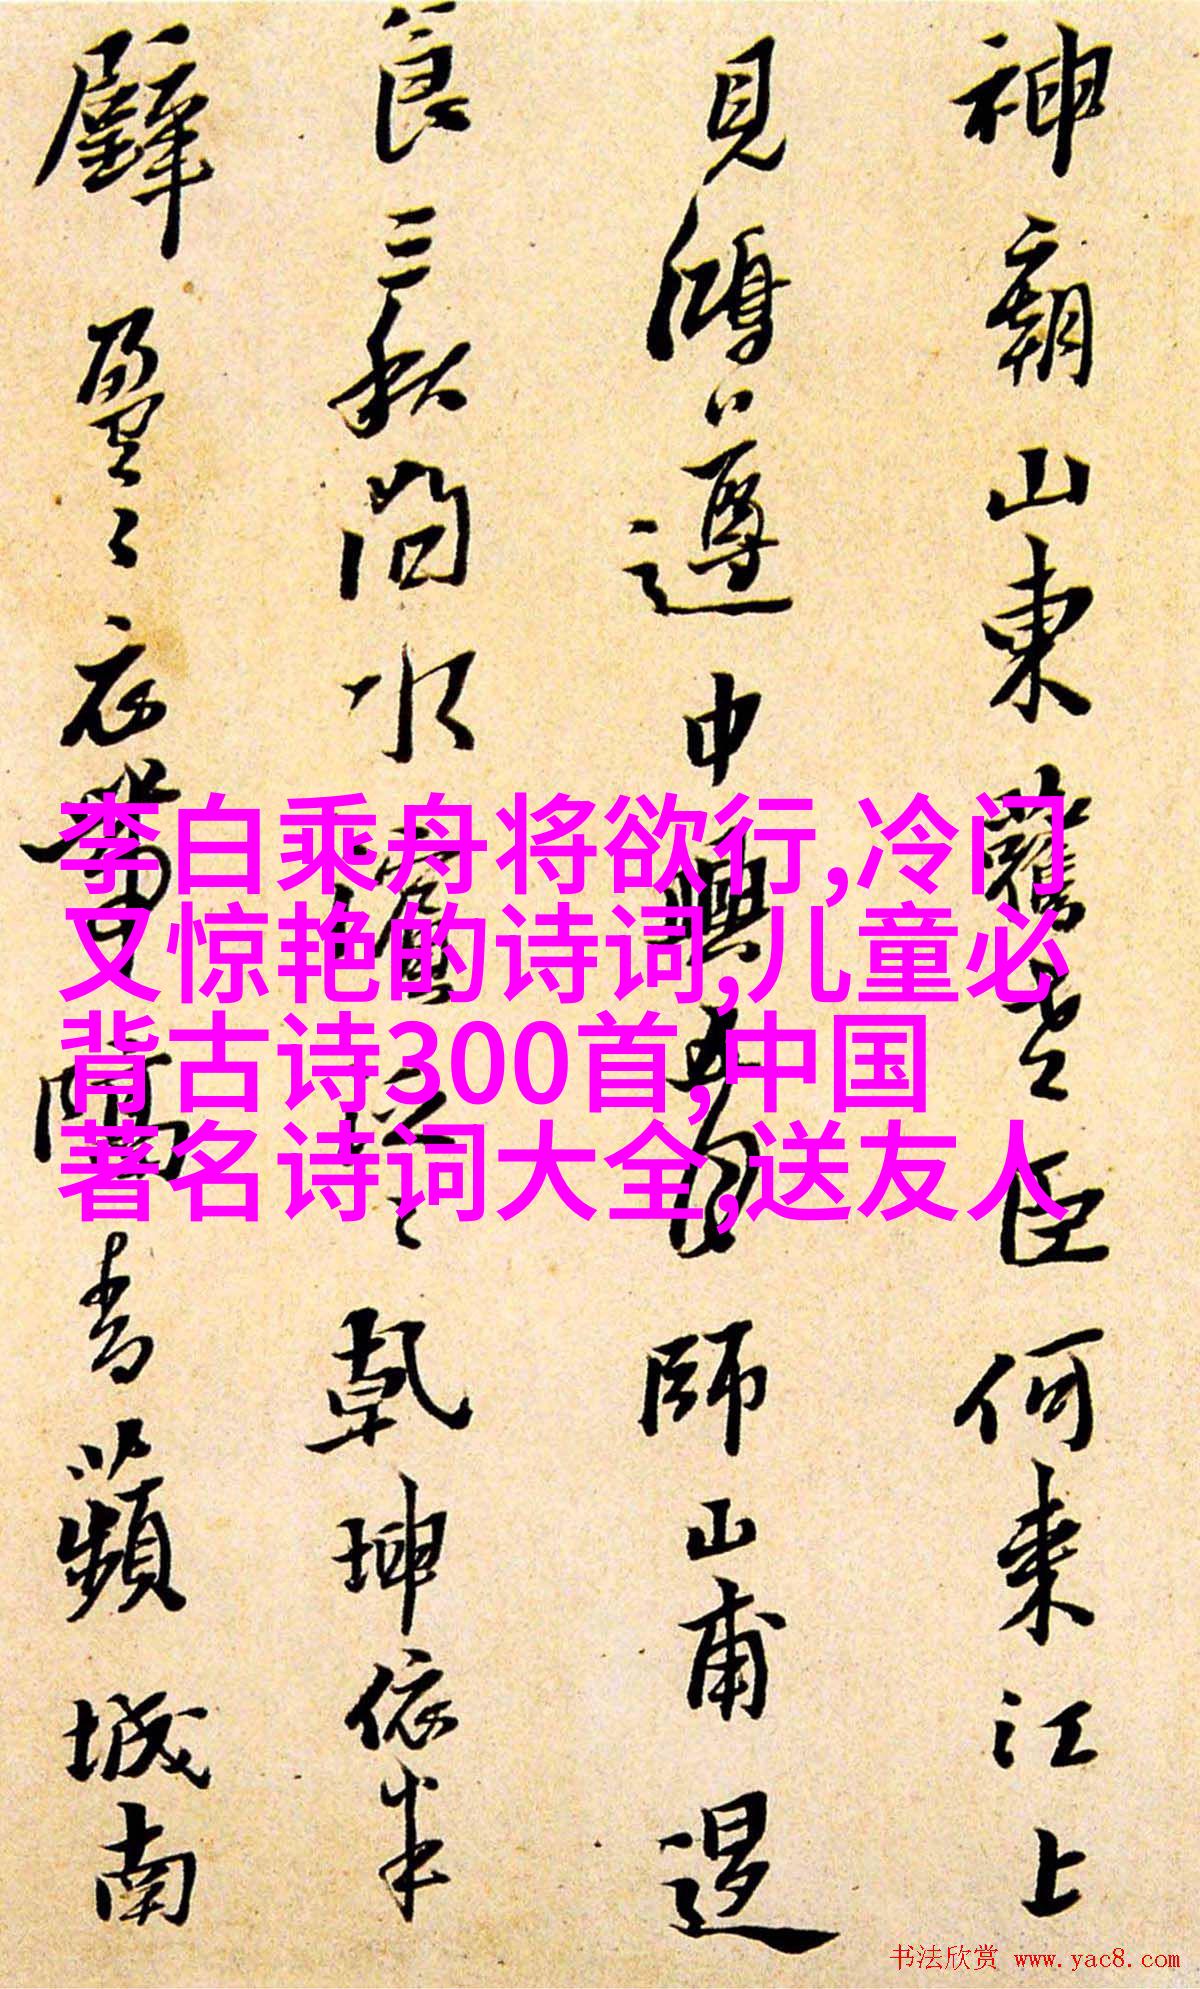 神廟山東舊老臣何來江上
見鴻遵中興
師山甫還
食三秋間水
乾坤依半
壁盈々衣帶隔青蘋城南
李白乘舟将欲行,冷门
又惊艳的诗词,儿童必
背古诗300首,中国
著名诗词大全,送友人
书法欣赏 www.yac8.com